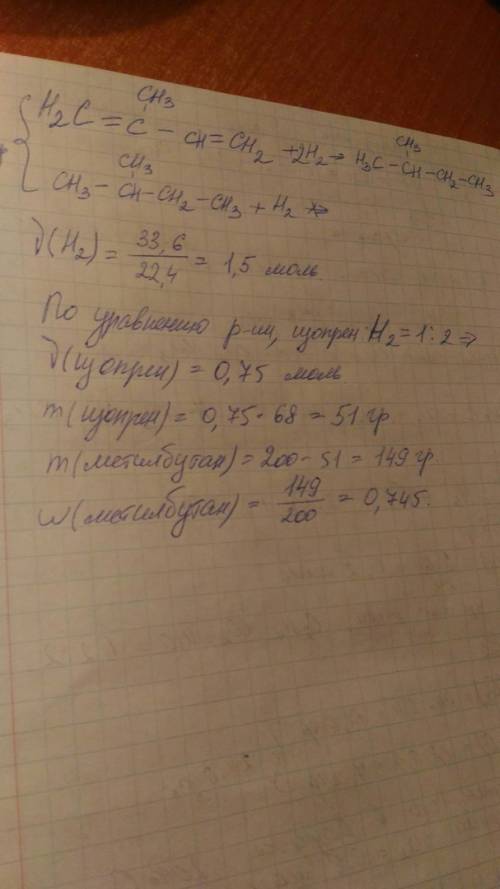 CH3
H2C = C - CH = CH2 + 2H2 → H3C - CH - CH2 - CH3
CH3
CH3
CH3 - CH - CH2 - CH3 + H2 ↛
ν(H2) = 33,6 / 22,4 = 1,5 моль
По уравнению р-ии, изопрен : H2 = 1 : 2 ⇒
ν(изопрен) = 0,75 моль
m(изопрен) = 0,75 · 68 = 51 гр
m(метилбутан) = 200 - 51 = 149 гр
ω(метилбутан) = 149 / 200 = 0,745.